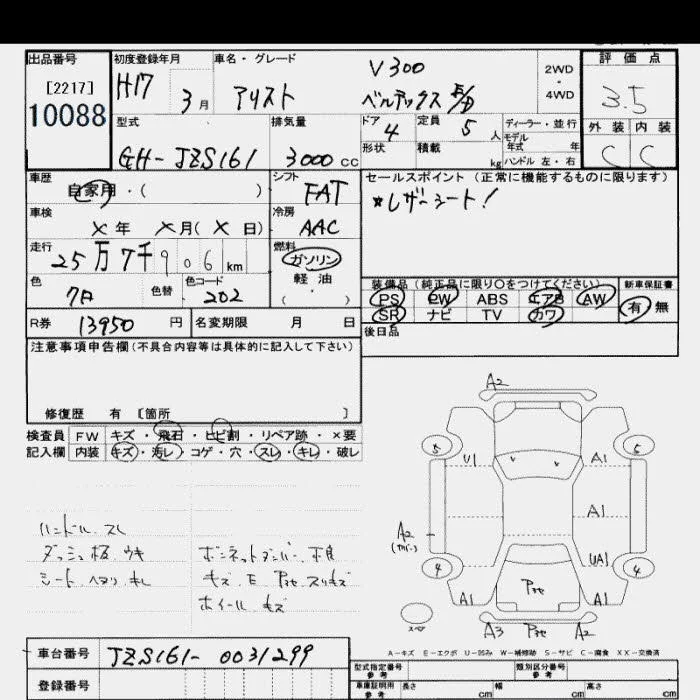 出品番号 初度登録年月 車名・グレード 評価点
[2217] H17 3月 アリスト V300 2WD・4WD 3.5
10088 ベルテックス
外装 内装
型式 排気量 ドア 定員 ディーラー・並行
4 5人 モデル年式 年
GH-JZS161 3000cc 形状 積載 kg ハンドル 左・右 C C
車歴 シフト セールスポイント (正常に機能するものに限ります)
自家用・( ) FAT *レザーシート!
車検 冷房
×年 ×月(×日) AAC
走行 燃料
25万7千906km ガソリン
色 色替 色コード 軽油
202 ・( )
装備品(純正品に限り○をつけてください) 新車保証書
PS PW ABS エアB AW 有 無
SR ナビ TV カワ
R券 13950円 名変期限 月 日 後日品
注意事項申告欄(不具合内容等は具体的に記入して下さい)
修復歴 有 [箇所 ]
検査員 FW キズ・飛石・ヒビ割・リペア跡・×要
記入欄 内装 キズ・汚レ・コゲ・穴・スレ・キレ・破レ
ハンドル スレ
ダッシュ板 ウキ ボンネットダンパー 不良
シート ヘタリ キレ キズ E スリキズ
ホイール キズ
A2
5 5
U1 A1
A1
A2
UA1
4 4
A1 A1
スペア A3 A2
A-キズ E-エクボ U-凹み W-補修跡 S-サビ C-腐食 XX-交換済
車台番号 JZS161-0031299
型式指定番号 参考 類別区分番号 参考
登録番号 車庫証明用 参考 長さ cm 幅 cm 高さ cm